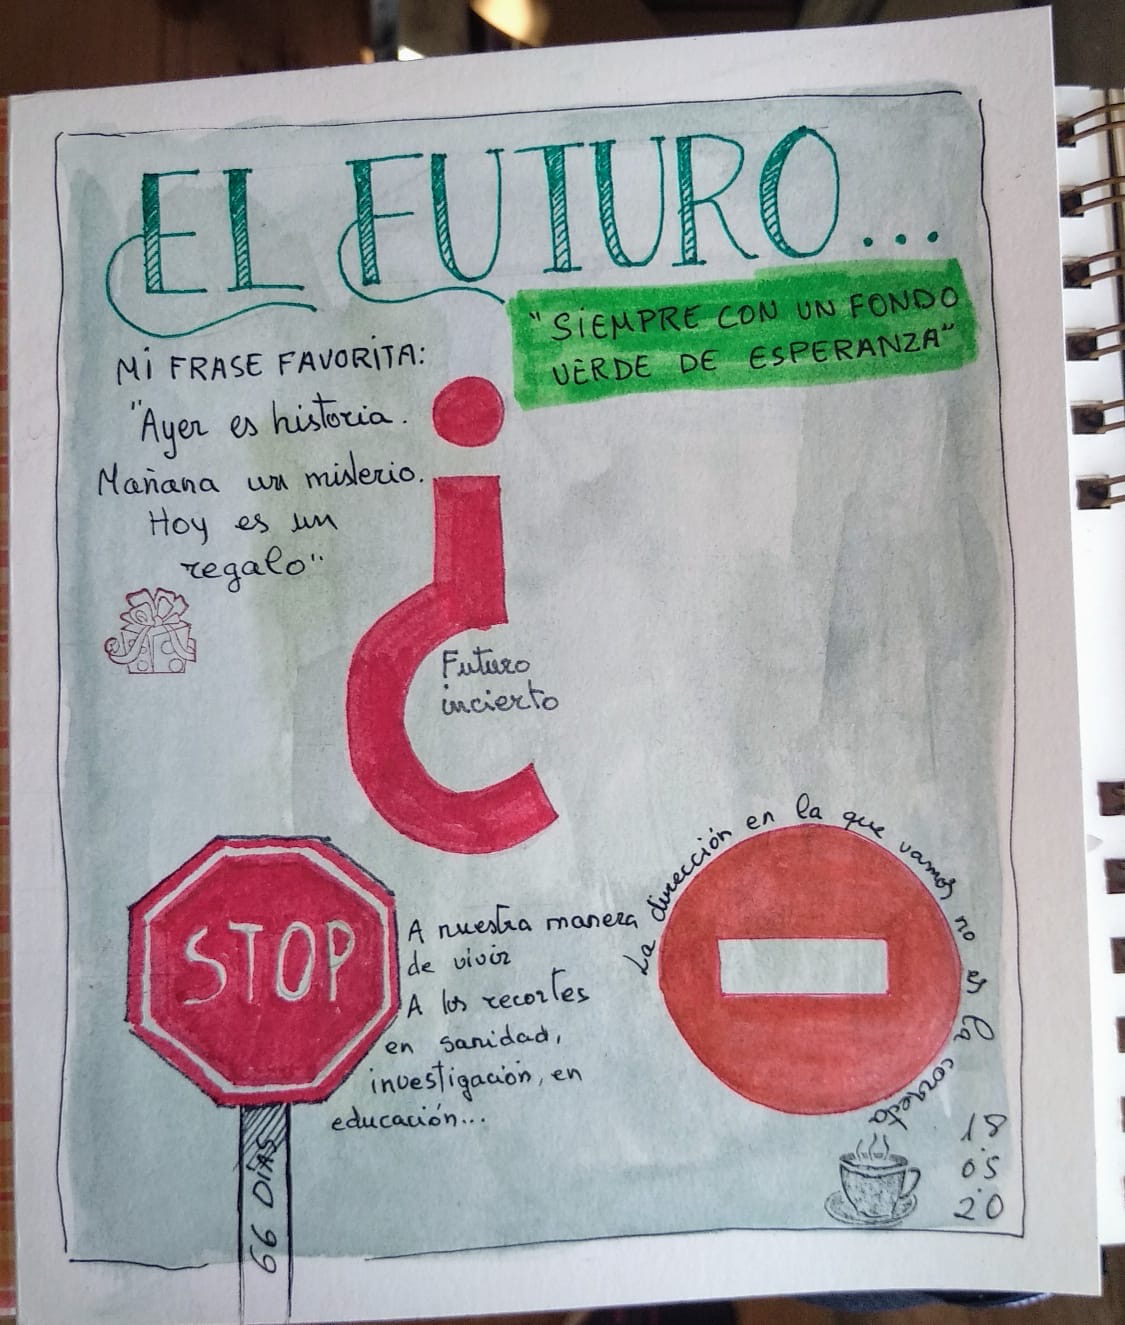 EL FUTURO...
"SiEMPRE CON UN FONDO
VERDE DE ESPERANZA"
Mi FRASE FAVORITA:
"Ayer es historia.
Mañana un misterio.
Hoy es un
regalo"
¿
Futuro
incierto
STOP
66 DÍAS
A nuestra manera
de vivir
A los recortes
en sanidad,
investigación, en
educación...
La dirección en la que vamos no es la correcta
18
05
20